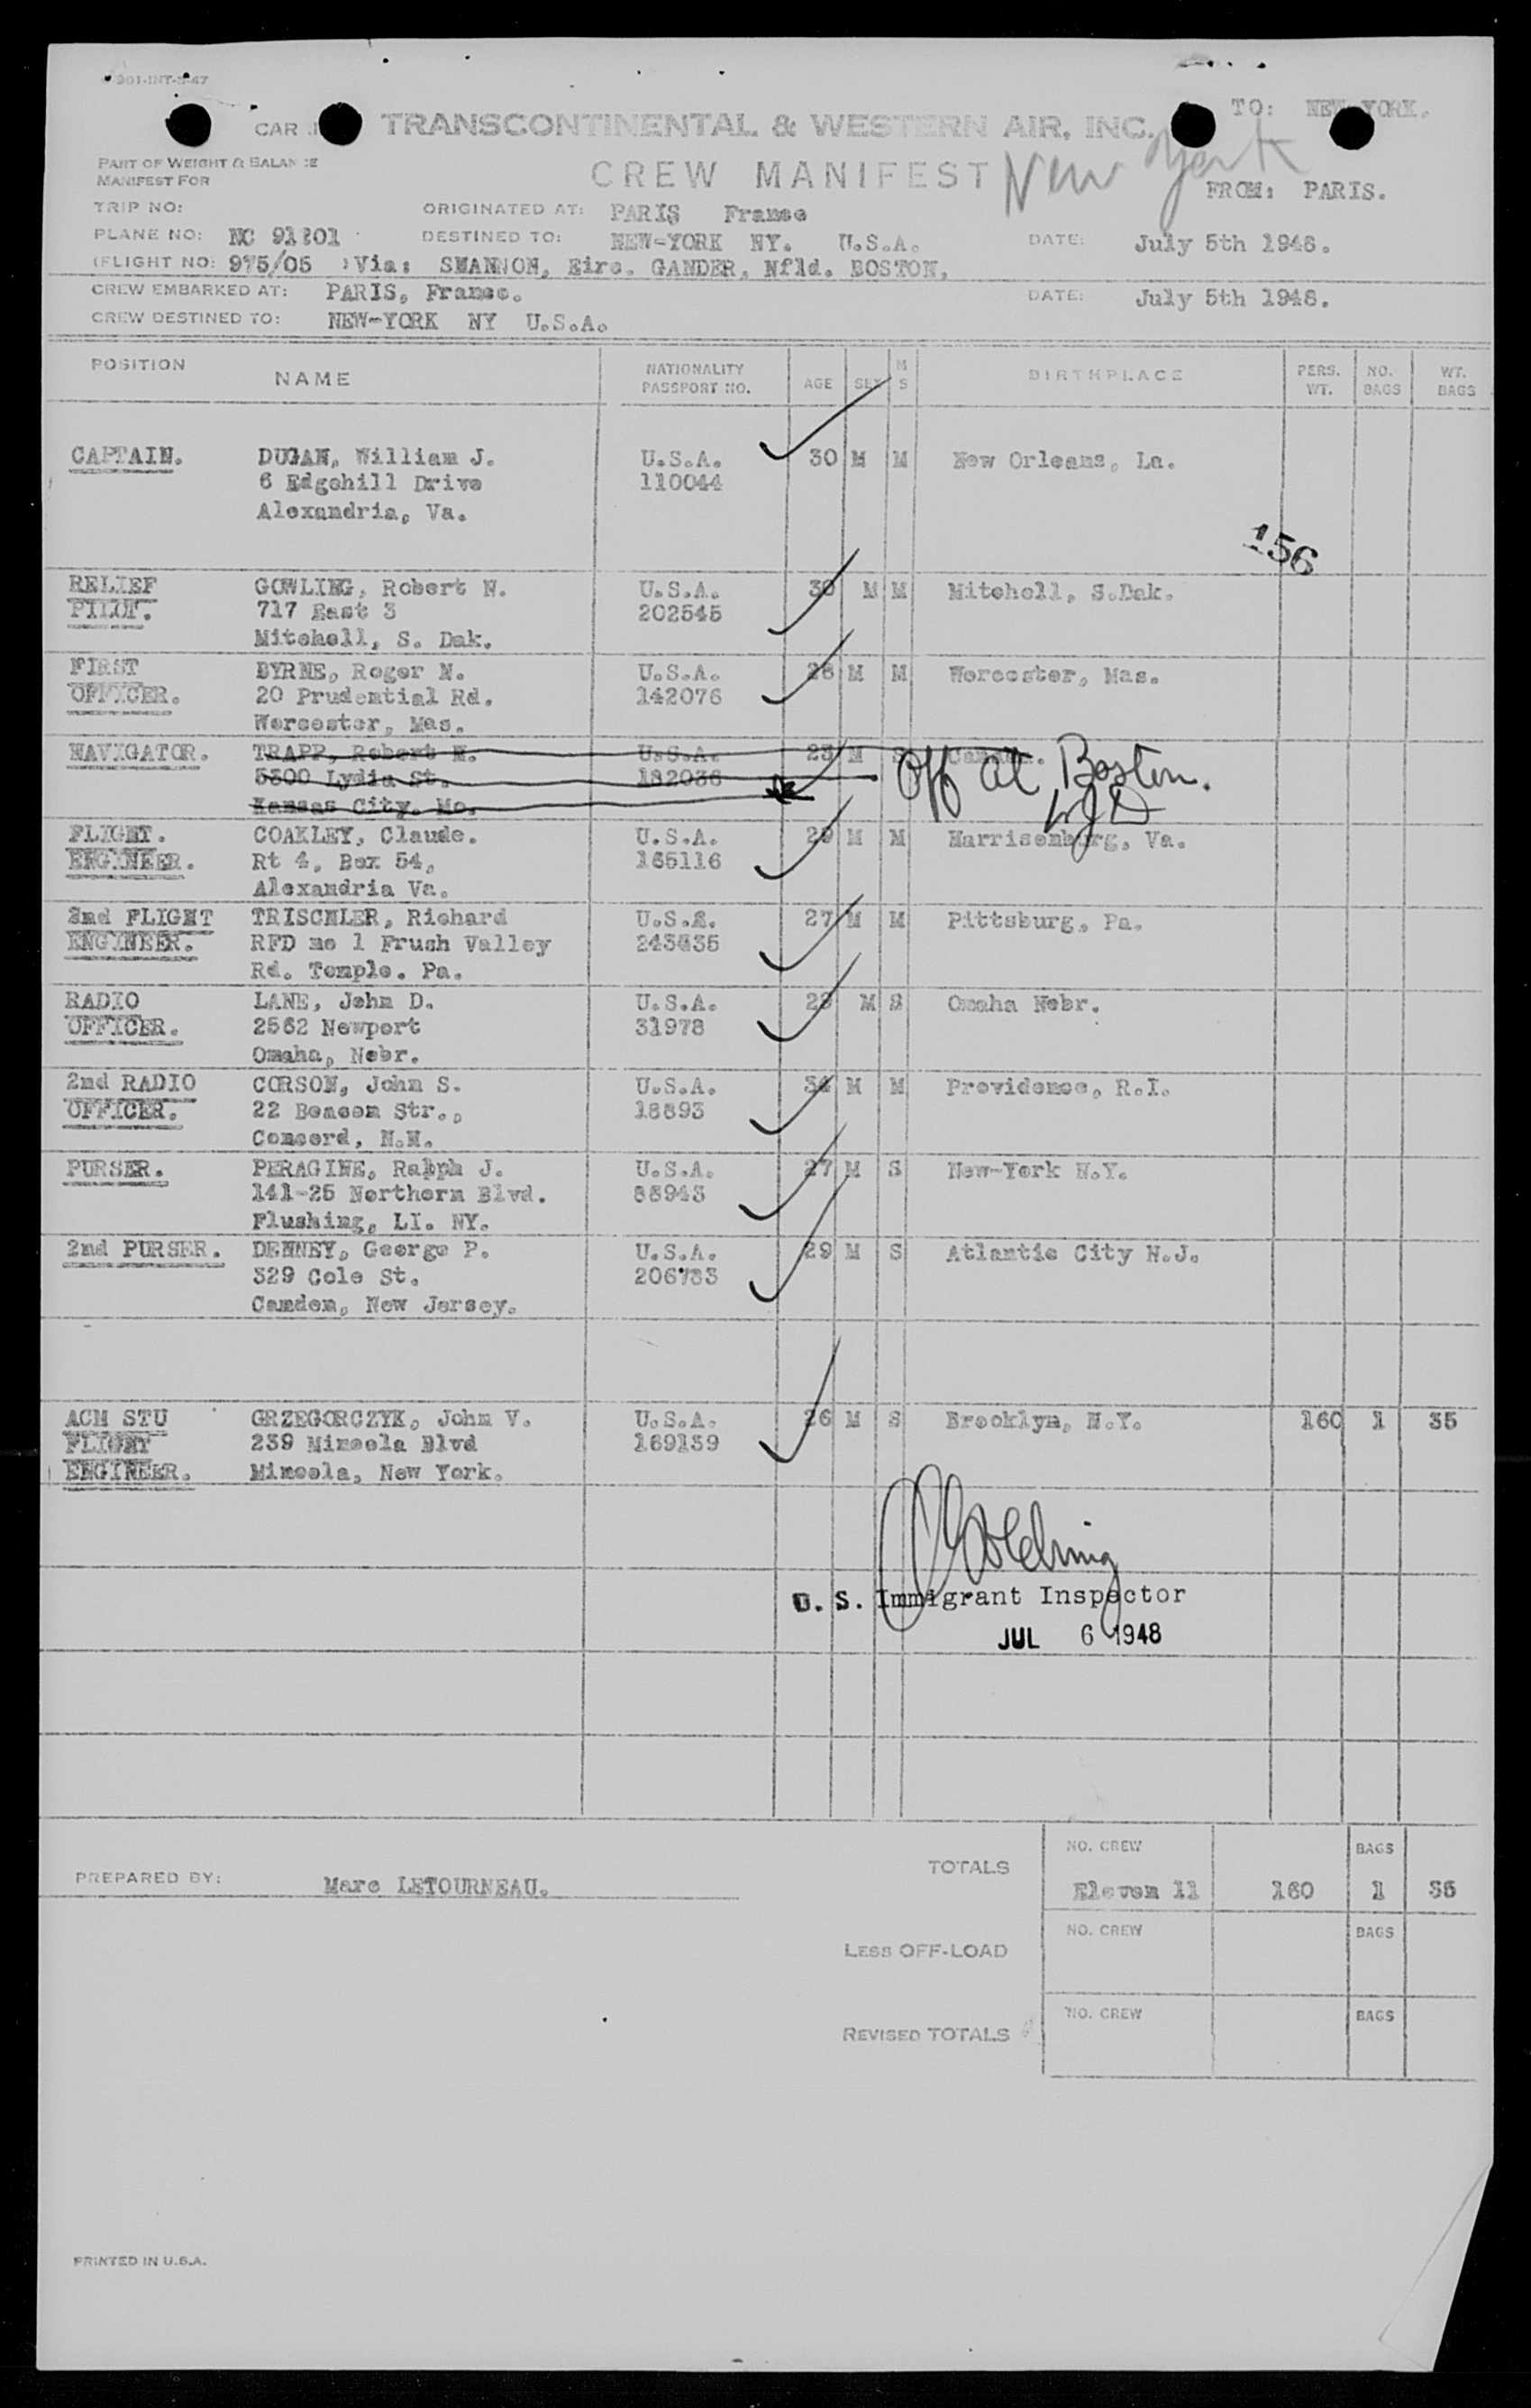 TO: NEW YORK.
TRANSCONTINENTAL & WESTERN AIR, INC.
CREW MANIFEST New York
FROM: PARIS.
PART OF WEIGHT & BALANCE
MANIFEST FOR
TRIP NO: ORIGINATED AT: PARIS France
PLANE NO: NC 91201 DESTINED TO: NEW-YORK NY. U.S.A. DATE: July 5th 1948.
(FLIGHT NO: 975/05 ) Via: SHANNON, Eire. GANDER, Nfld. BOSTON,
CREW EMBARKED AT: PARIS, France. DATE: July 5th 1948.
CREW DESTINED TO: NEW-YORK NY U.S.A.
POSITION NAME NATIONALITY PASSPORT NO. AGE SEX M S BIRTHPLACE PERS. WT. NO. BAGS WT. BAGS
CAPTAIN. DUGAN, William J. U.S.A. 30 M M New Orleans, La.
6 Edgehill Drive 110044
Alexandria, Va.
156
RELIEF GOWLING, Robert N. U.S.A. 30 M M Mitchell, S.Dak.
PILOT. 717 East 3 202545
Mitchell, S. Dak.
FIRST BYRNE, Roger N. U.S.A. 28 M M Worcester, Mas.
OFFICER. 20 Prudential Rd. 142076
Worcester, Mas.
NAVIGATOR. TRAPP, Robert U.S.A. 23 M S
5300 Lydia St. 182036 Off at Boston.
Kansas City. Mo. WJD
FLIGHT. COAKLEY, Claude. U.S.A. 29 M M Harrisonburg, Va.
ENGINEER. Rt 4, Box 54, 165116
Alexandria Va.
2nd FLIGHT TRISCHLER, Richard U.S.A. 27 M M Pittsburg, Pa.
ENGINEER. RFD no 1 Frush Valley
Rd. Temple. Pa.
RADIO LANE, John D. U.S.A. 28 M S Omaha Nebr.
OFFICER. 2562 Newport 31978
Omaha, Nebr.
2nd RADIO CORSON, John S. U.S.A. 34 M M Providence, R.I.
OFFICER. 22 Beacon Str., 18893
Concord, N.H.
PURSER. PERAGINE, Ralph J. U.S.A. 27 M S New-York N.Y.
141-25 Northern Blvd.
Flushing, LI. NY.
2nd PURSER. DENNEY, George P. U.S.A. 29 M S Atlantic City N.J.
329 Cole St. 206733
Camden, New Jersey.
ACM STU GRZEGORCZYK, John V. U.S.A. 26 M S Brooklyn, N.Y. 160 1 35
FLIGHT 239 Mineola Blvd 169139
ENGINEER. Mineola, New York.
Golding
U. S. Immigrant Inspector
JUL 6 1948
NO. CREW BAGS
PREPARED BY: Marc LETOURNEAU. TOTALS Eleven 11 160 1 35
NO. CREW BAGS
LESS OFF-LOAD
NO. CREW BAGS
REVISED TOTALS
PRINTED IN U.S.A.